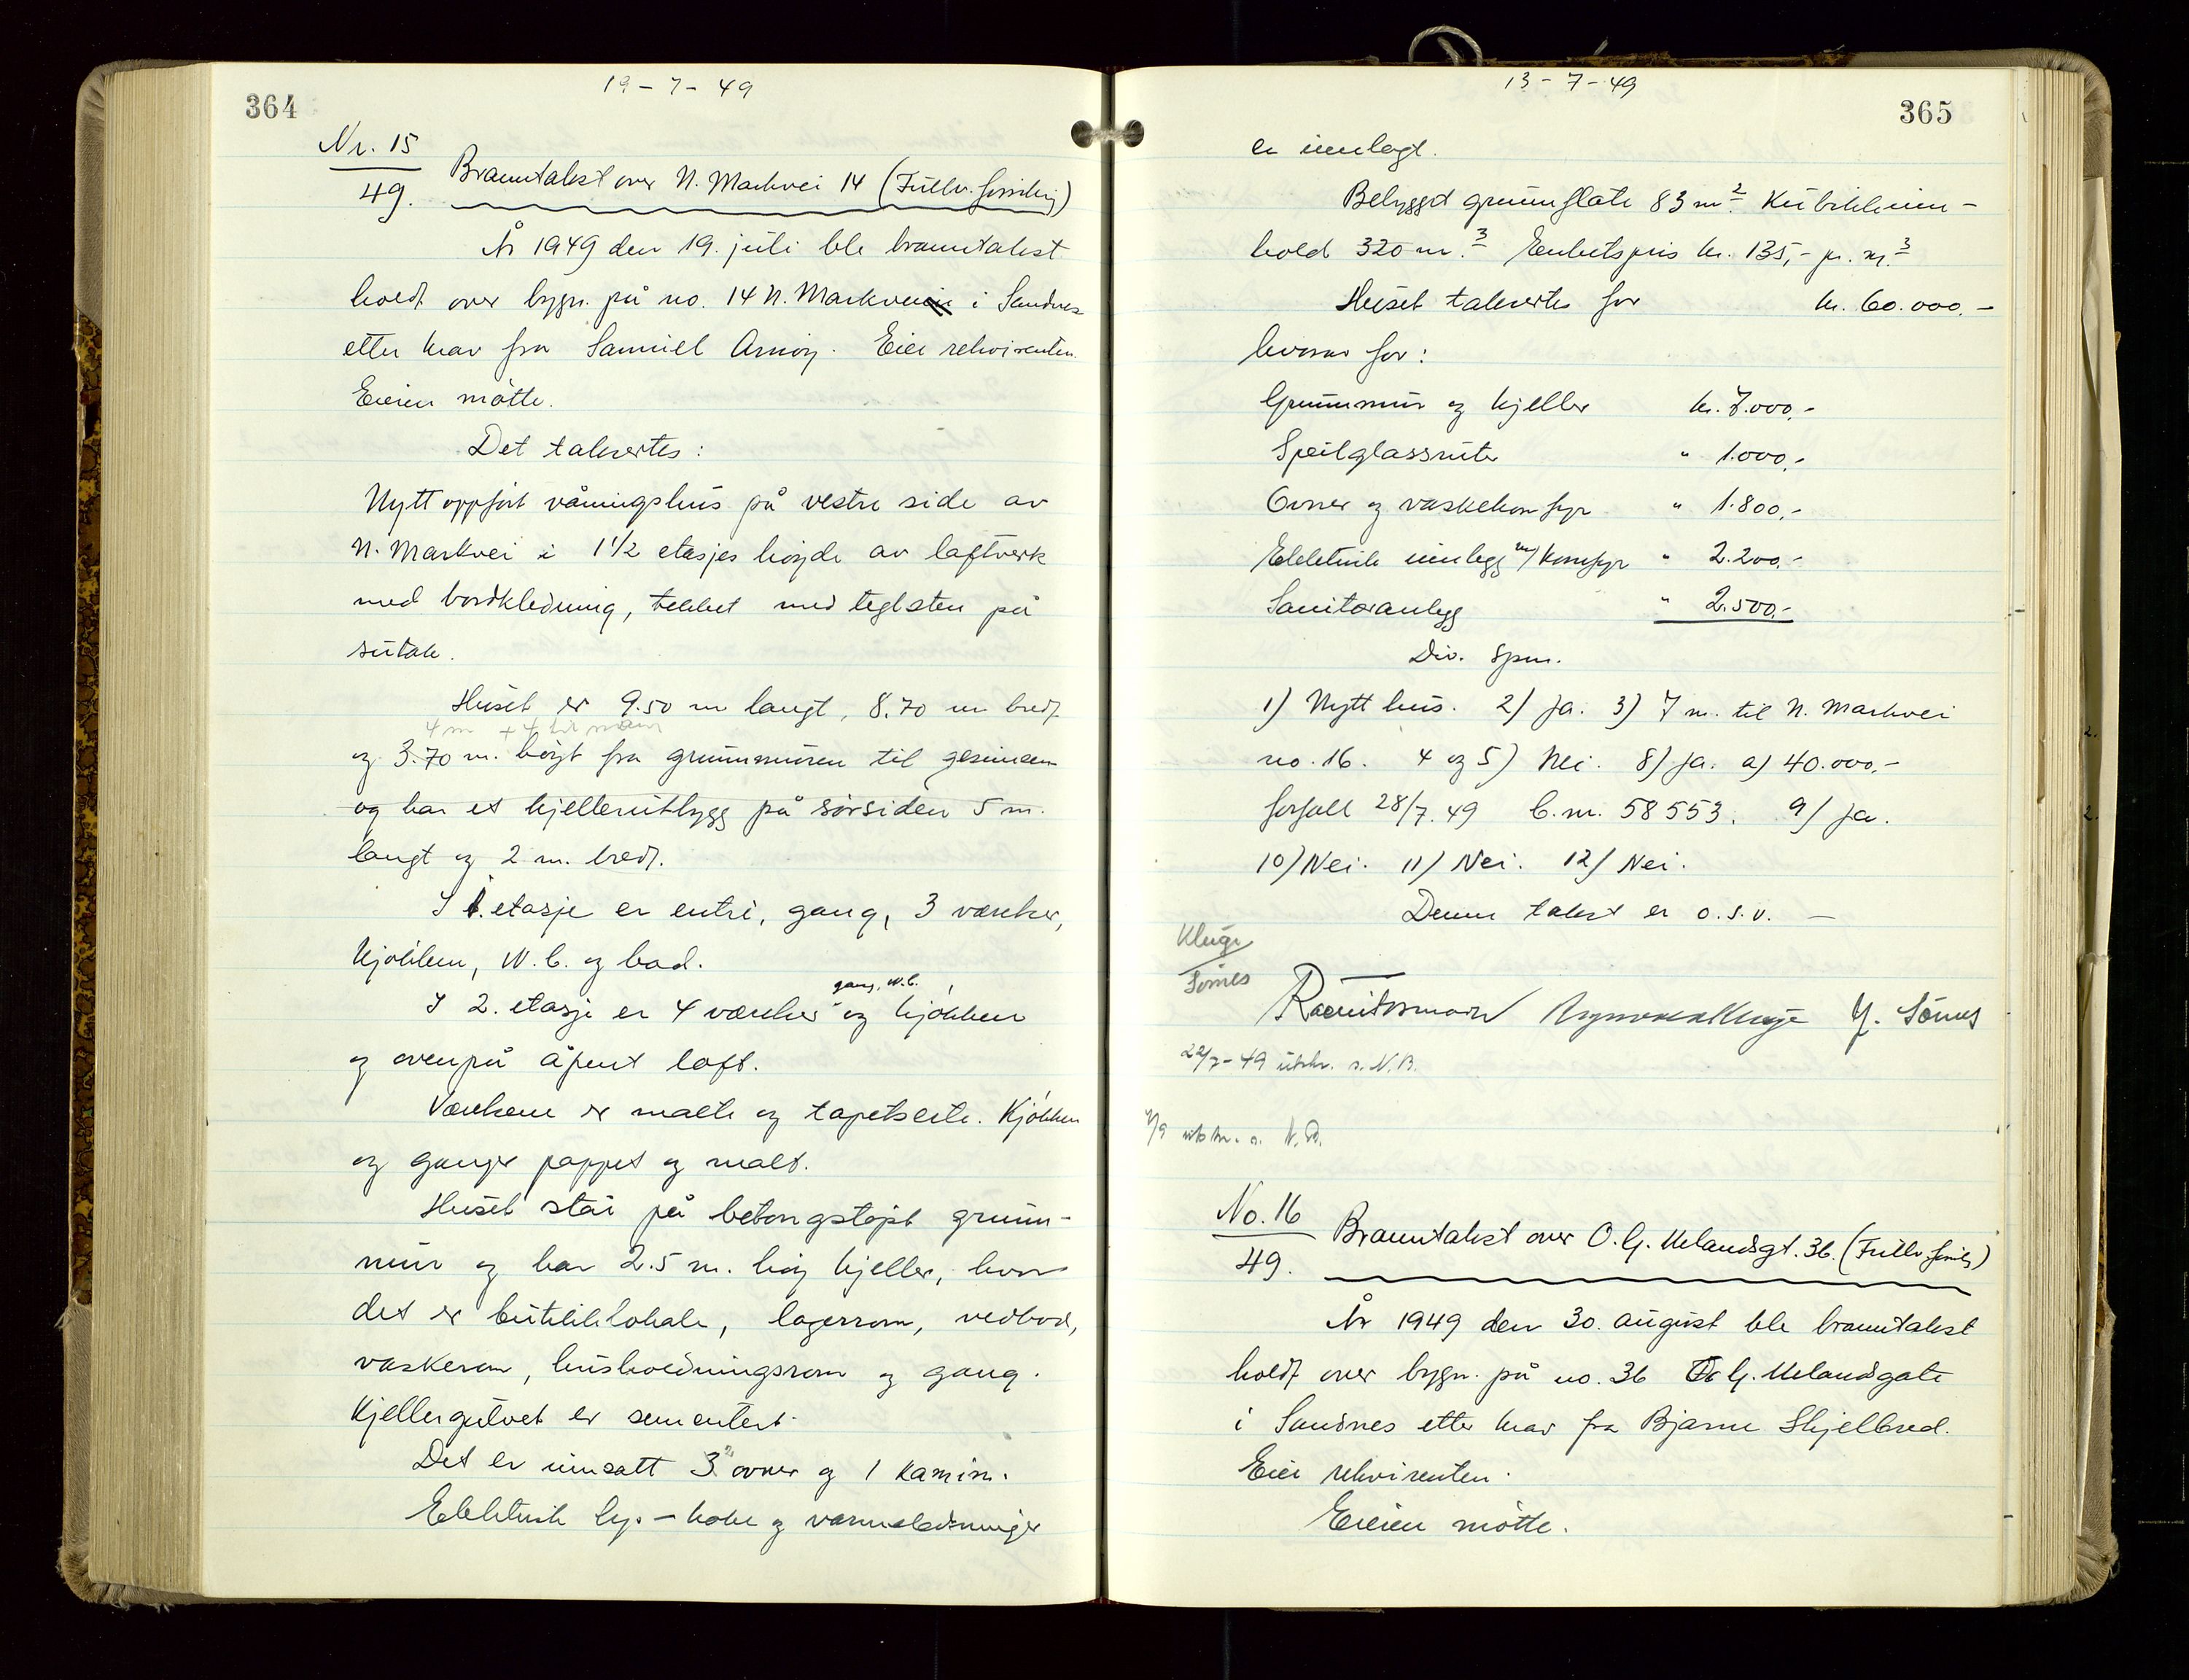 364
19-7-49
Nr. 15
49.
Branntakst over N. Markvei 14 (Fullv. forsikring)
År 1949 den 19. juli ble branntakst
holdt over bygn. på no. 14 N. Markvei i Sandnes
etter krav fra Samuel Arnøy. Eier rekvirenten.
Eieren møtte.
Det taksertes:
Nytt oppført våningshus på vestre side av
N. Markvei i 1 1/2 etasjes høyde av laftverk
med bordkledning, tekket med teglsten på
sutak.
Huset er 9.50 m langt, 8.70 m bredt
4 m + 4
og 3.70 m. høyt fra grunnmuren til gesimsen
og har et kjellerutbygg på sørsiden 5 m.
langt og 2 m. bredt.
I 1. etasje er entré, gang, 3 værelser,
kjøkken, W.C. og bad.
gang, W.C.
I 2. etasje er 4 værelser og kjøkken
og ovenpå åpent loft.
Værelsene er malte og tapetserte. Kjøkken
og ganger pappet og malt.
Huset står på betongstøpt grunn-
mur og har 2.5 m. høy kjeller, hvor
det er butikklokale, lagerrom, vedbod,
vaskerom, husholdningsrom og gang.
Kjellergulvet er sementert.
Det er innsatt 3 ovner og 1 kamin.
Elektrisk lys- koke og varmeledninger
365
13-7-49
er innlagt.
Bebygget grunnflate 83 m². Kubikkinn-
hold 320 m.³ Enhetspris kr. 135,- pr. m.³
Huset taksertes for kr. 60.000.-
hvorav for:
Grunnmur og kjeller kr. 7.000.-
Speilglassruter " 1.000.-
Ovner og vaskekomfyr " 1.800.-
Elektrisk innlegg m/ komfyr " 2.200.-
Sanitæranlegg " 2.500.-
Div. spm.
1) Nytt hus. 2) Ja. 3) 7 m. til N. Markvei
no. 16. 4 og 5) Nei. 8) Ja. a) 40.000.-
forfall 28/7.49 C.nr. 58553. 9) Ja.
10) Nei. 11) Nei. 12) Nei.
Denne takst er o.s.v. —
Kluge
Sømes
Kluge Sømes
22/7-49 utskr. s. N.B.
utskr. s. N.B.
No. 16
49.
Branntakst over O. G. Uelandsgt. 36. (Fullv. forsikr)
År 1949 den 30. august ble branntakst
holdt over bygn. på no. 36 O. G. Uelandsgate
i Sandnes etter krav fra Bjarne Skjelbred.
Eier rekvirenten.
Eieren møtte.